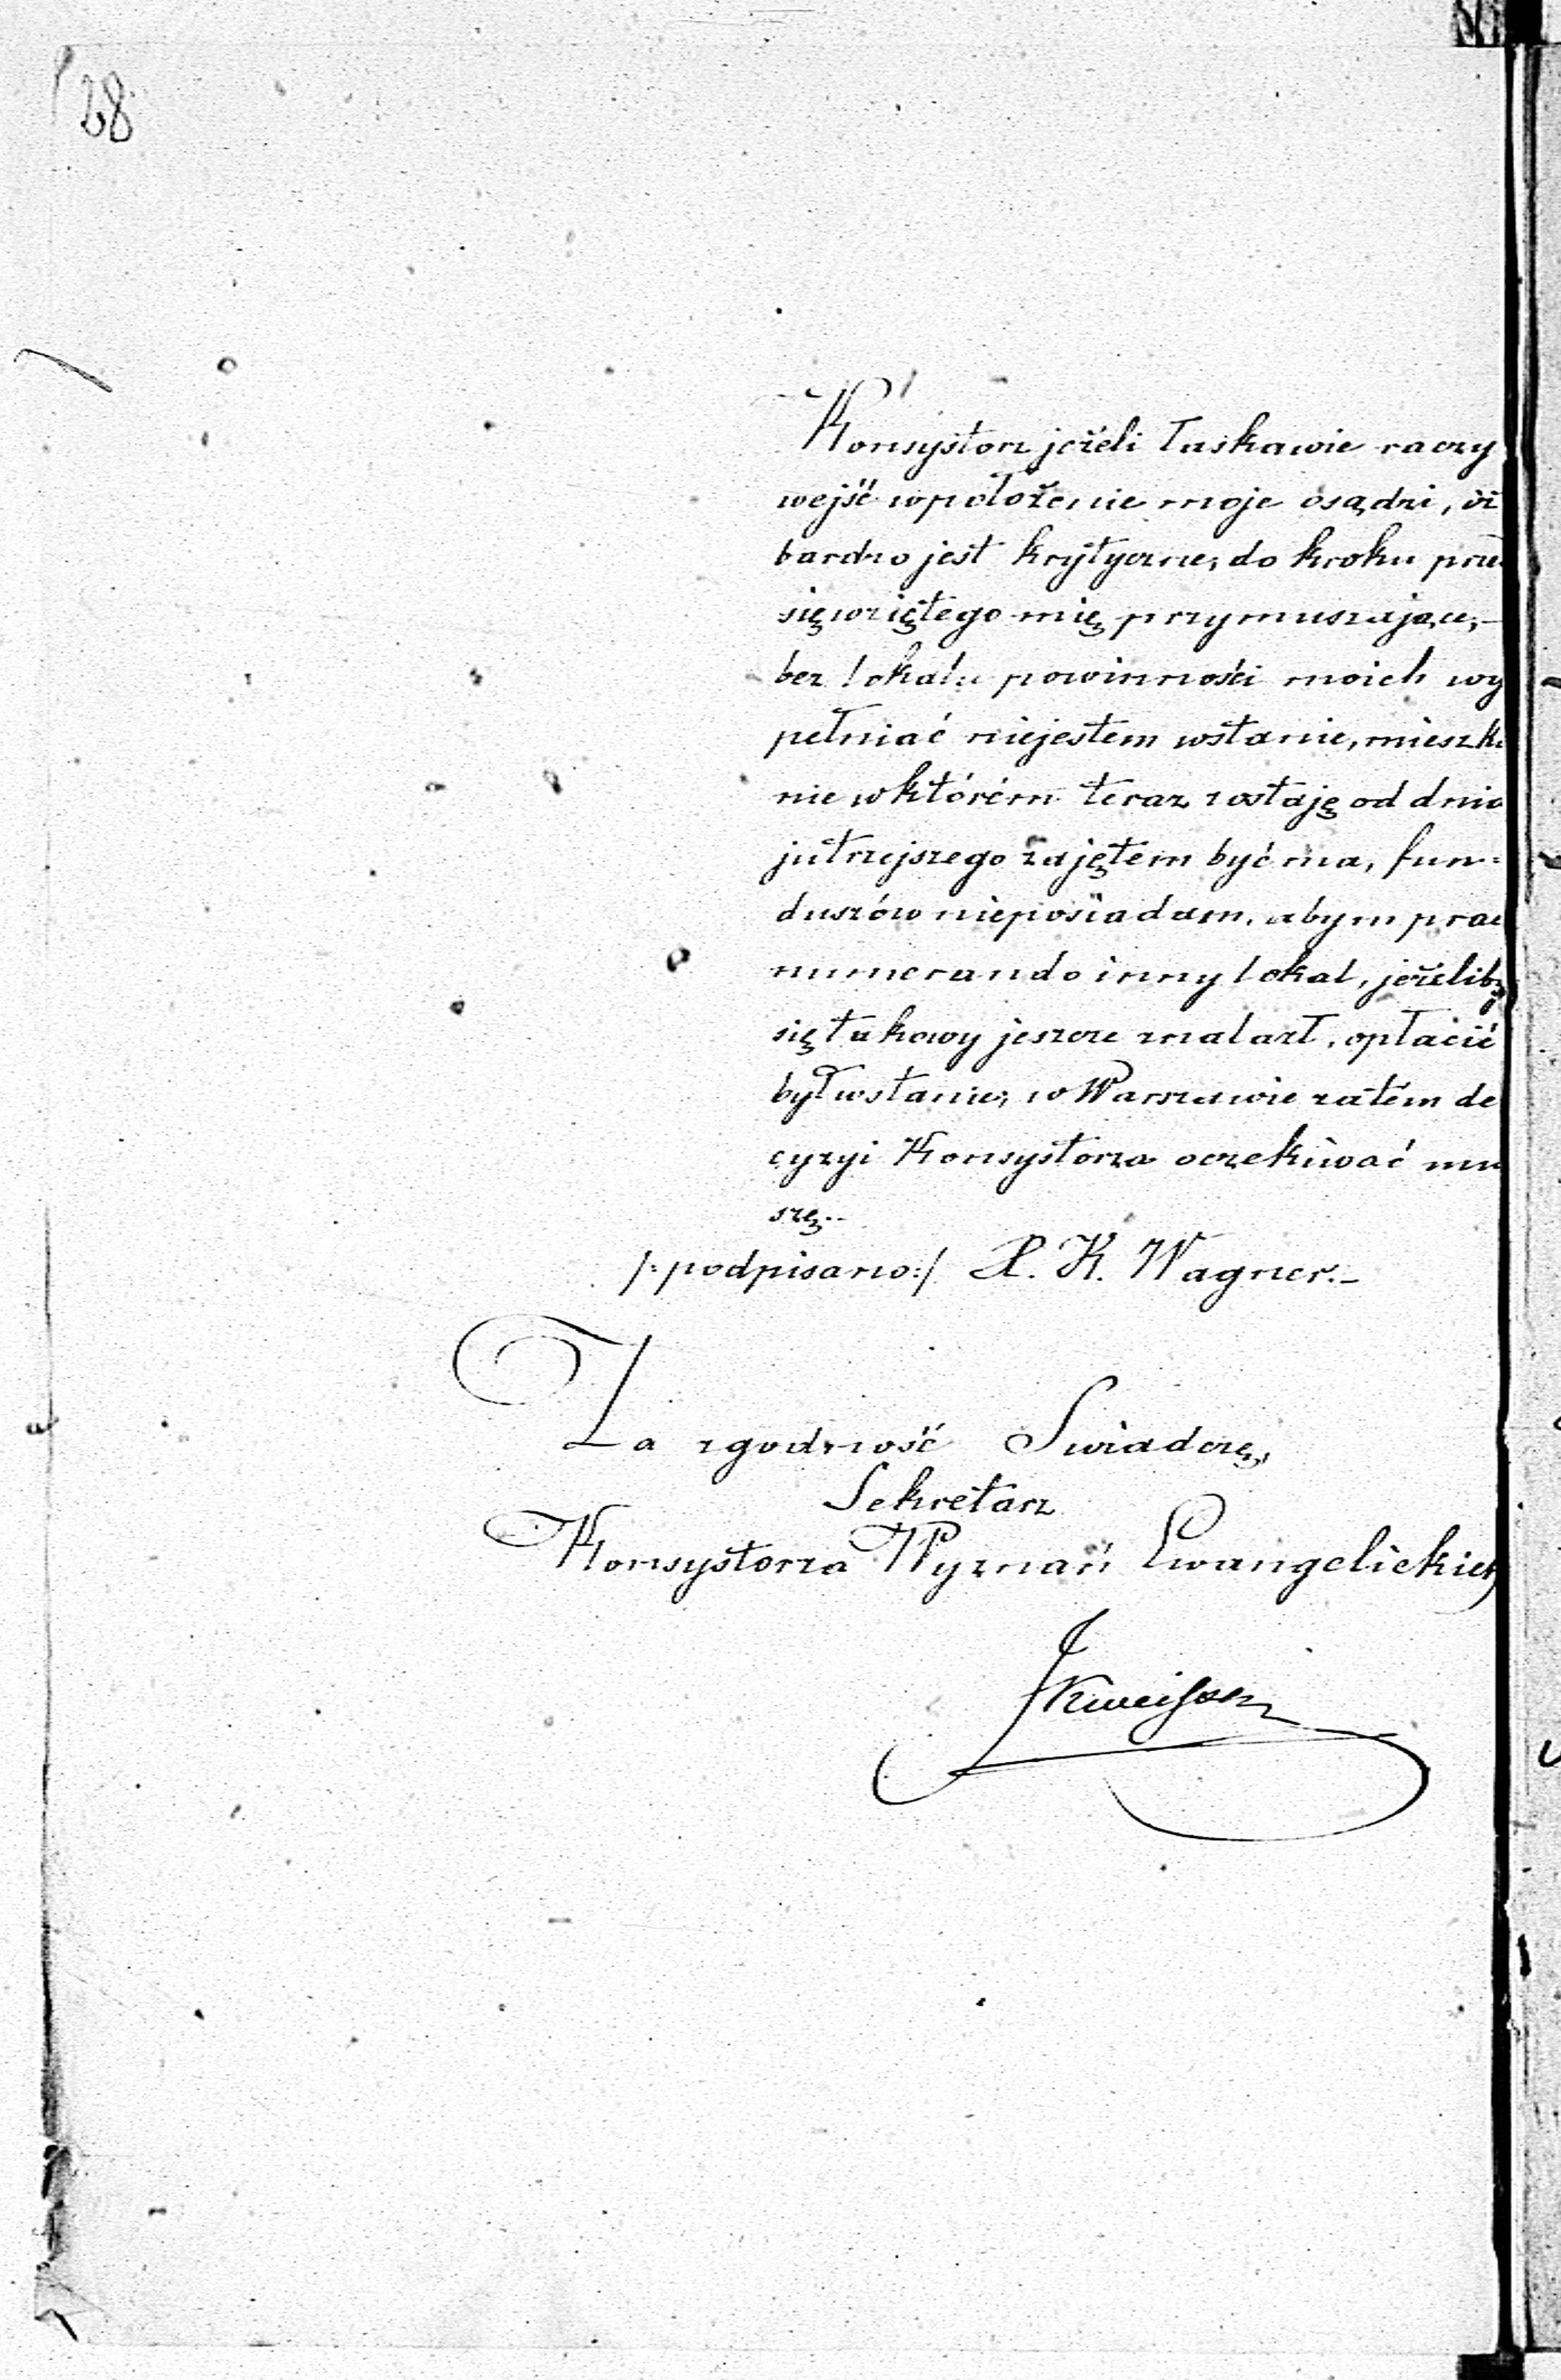 28
Konsystorz jeżeli łaskawie raczy
wejść wpołożenie moje osądzi, iż
bardzo jest krytyczne, do kroku prze
sięwziętego mię przymuszające,-
bez lokalu powinności moich wy
pełniać niejestem wstanie, mieszka
nie wktórém teraz zostaję od dnia
jutrzejszego zajętem być ma, fun=
duszów nieposiadam, abym prae
numerando inny lokal, jeżeliby
się takowy jeszcze znalazł, opłacić
był wstanie; w Warszawie zatém de
cyzyi Konsystorza oczekiwać mu
szę.-
/:podpisano:/ X. K. Wagner.-
Za zgodność Swiadczę,
Sekretarz
Konsystorza Wyznań Ewangelickich